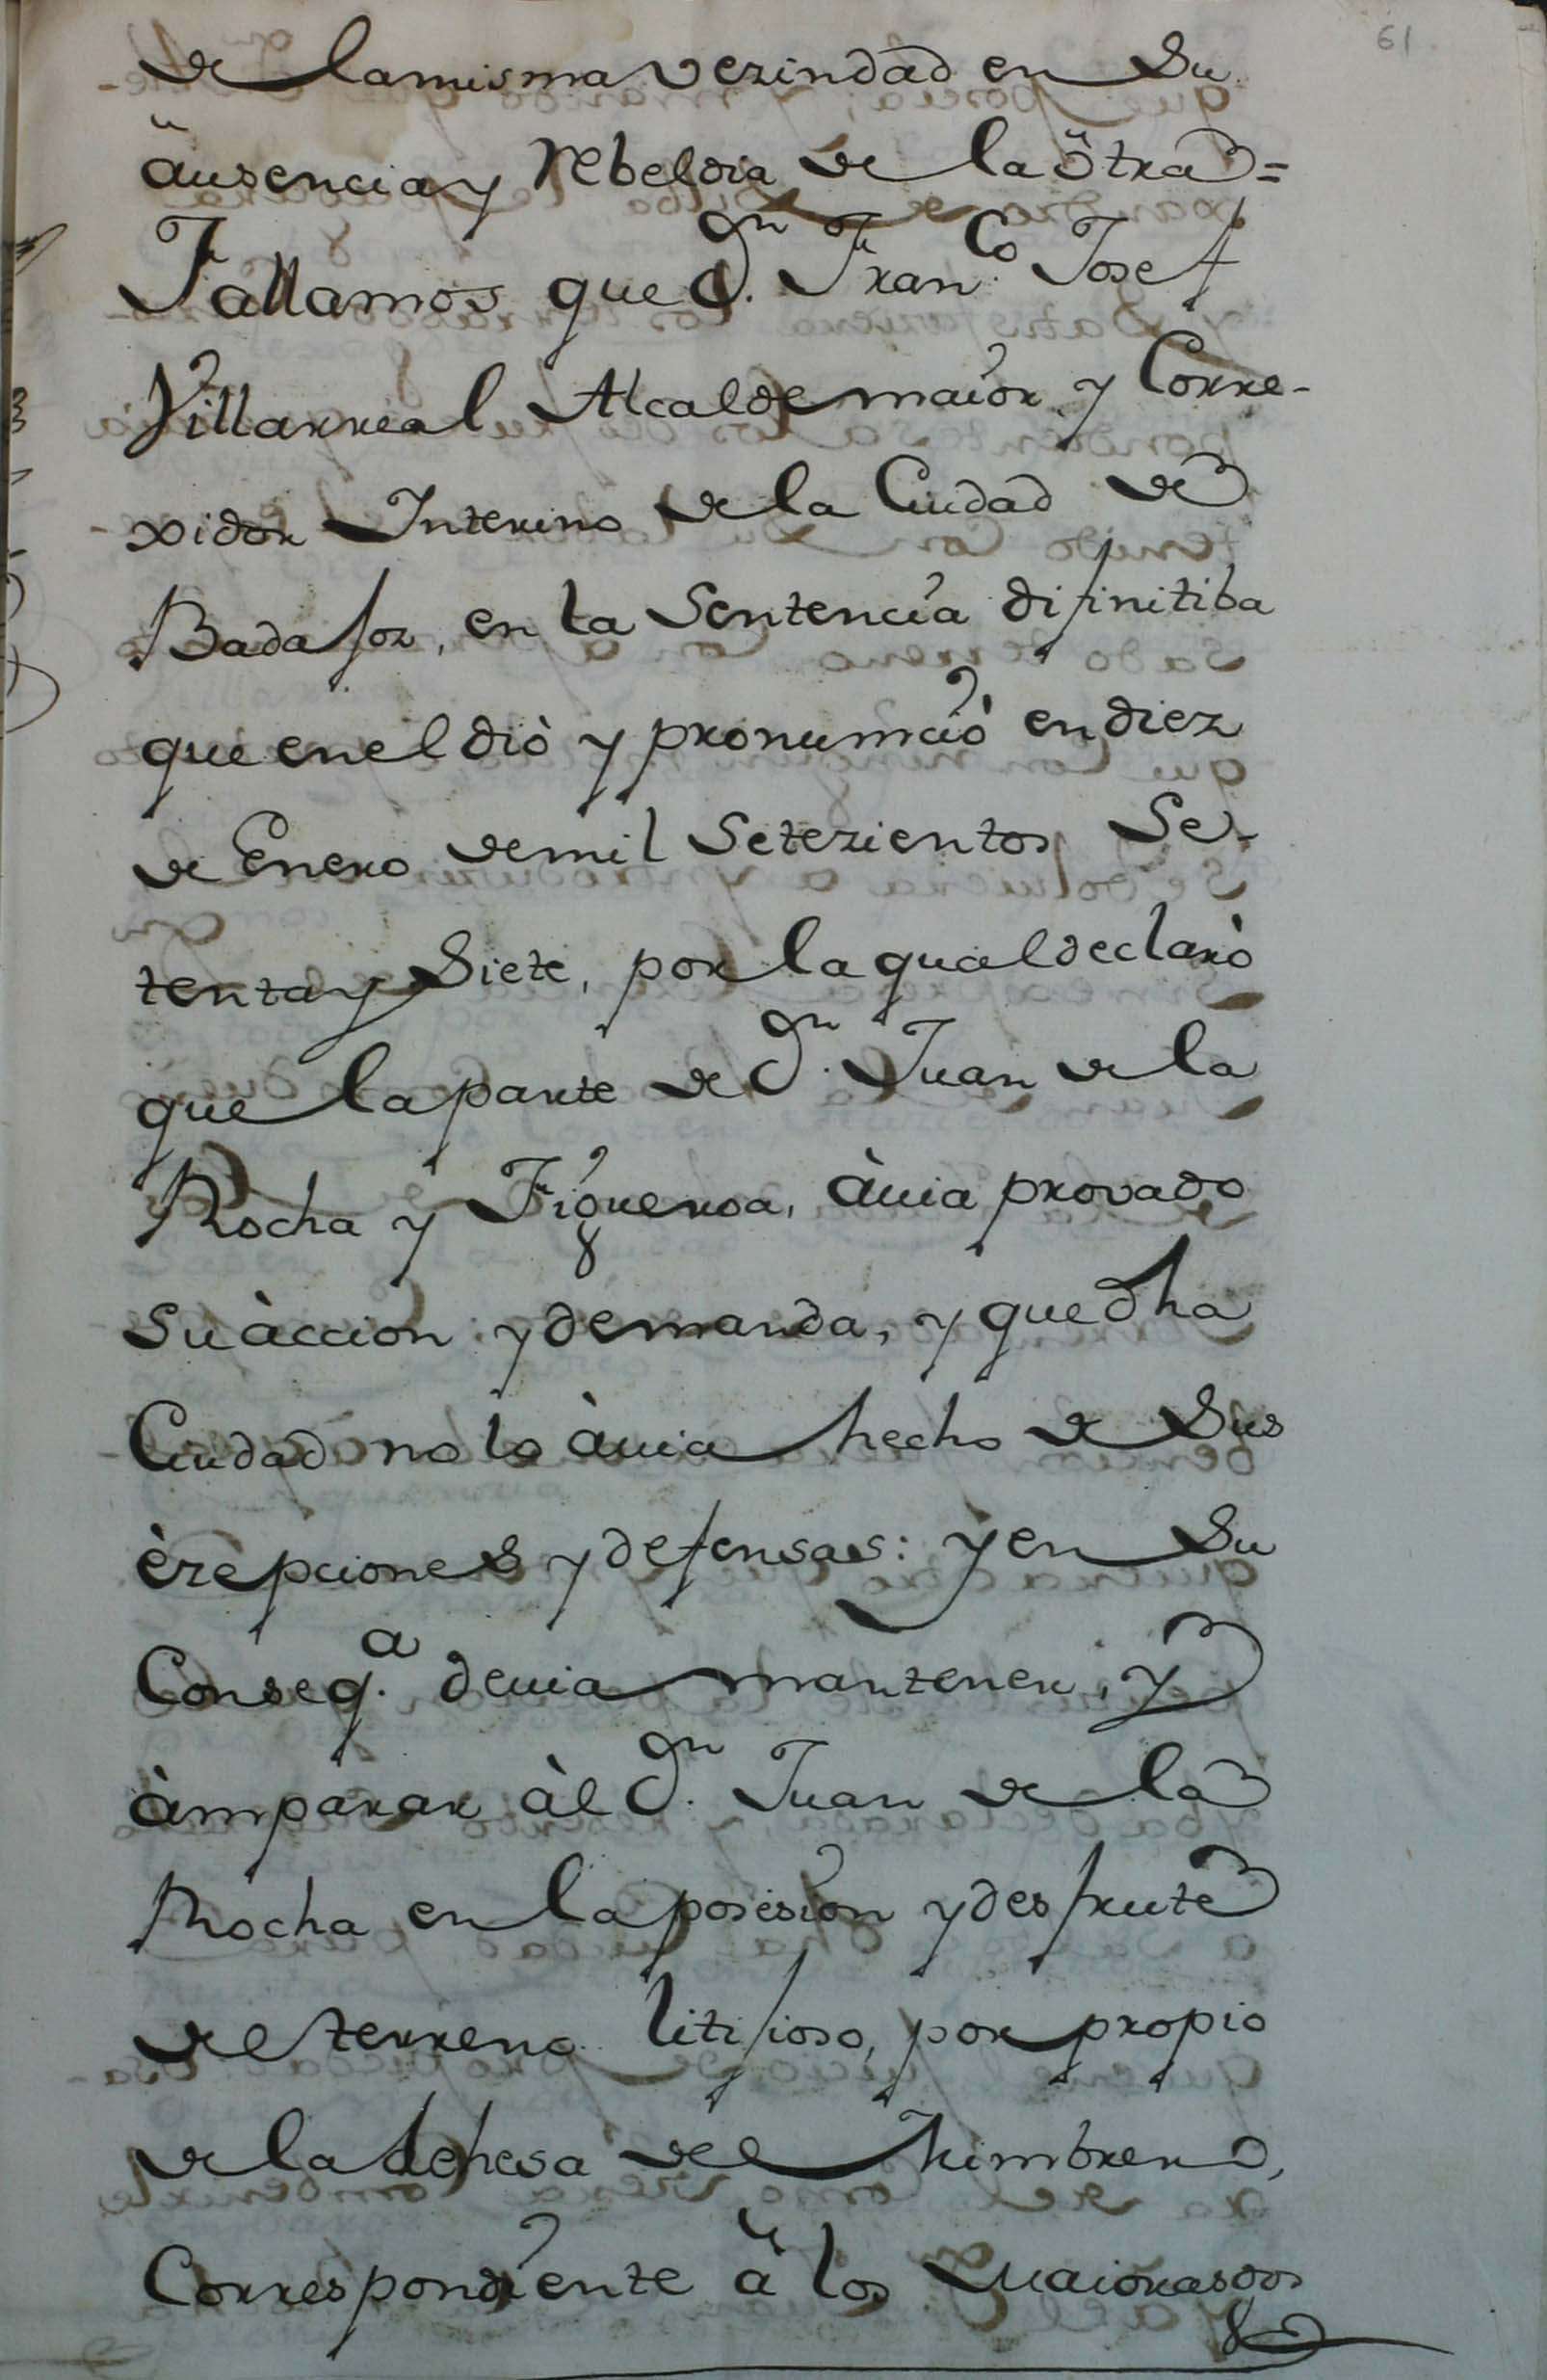 61
de lamisma vezindad en Su
ausencia y rebeldia de la ôtra =
Fallamos que Dn. Franco. Josef
Villarreal Alcalde maior y Corre-
xidor Interino de la Ciudad de
Badajoz, en la Sentencia difinitiba
que en el diò y pronumciò en diez
de Enero de mil Setezientos Se-
tenta y Siete, por la qual declarò
que la parte de Dn. Juan de la
Rocha y Figueroa, àuia provado
su àccion y demanda, y que dha
Ciudad no lo àuia hecho de Sus
èzepciones y defensas: y en Su
Conseqa. deuia mantener, y
àmparar àl Dn. Juan de la
Rocha en la posesion y desfrute
del terreno litijioso, por propio
de la dehesa del Himbrero,
Correspondiente à los Maiorasgos